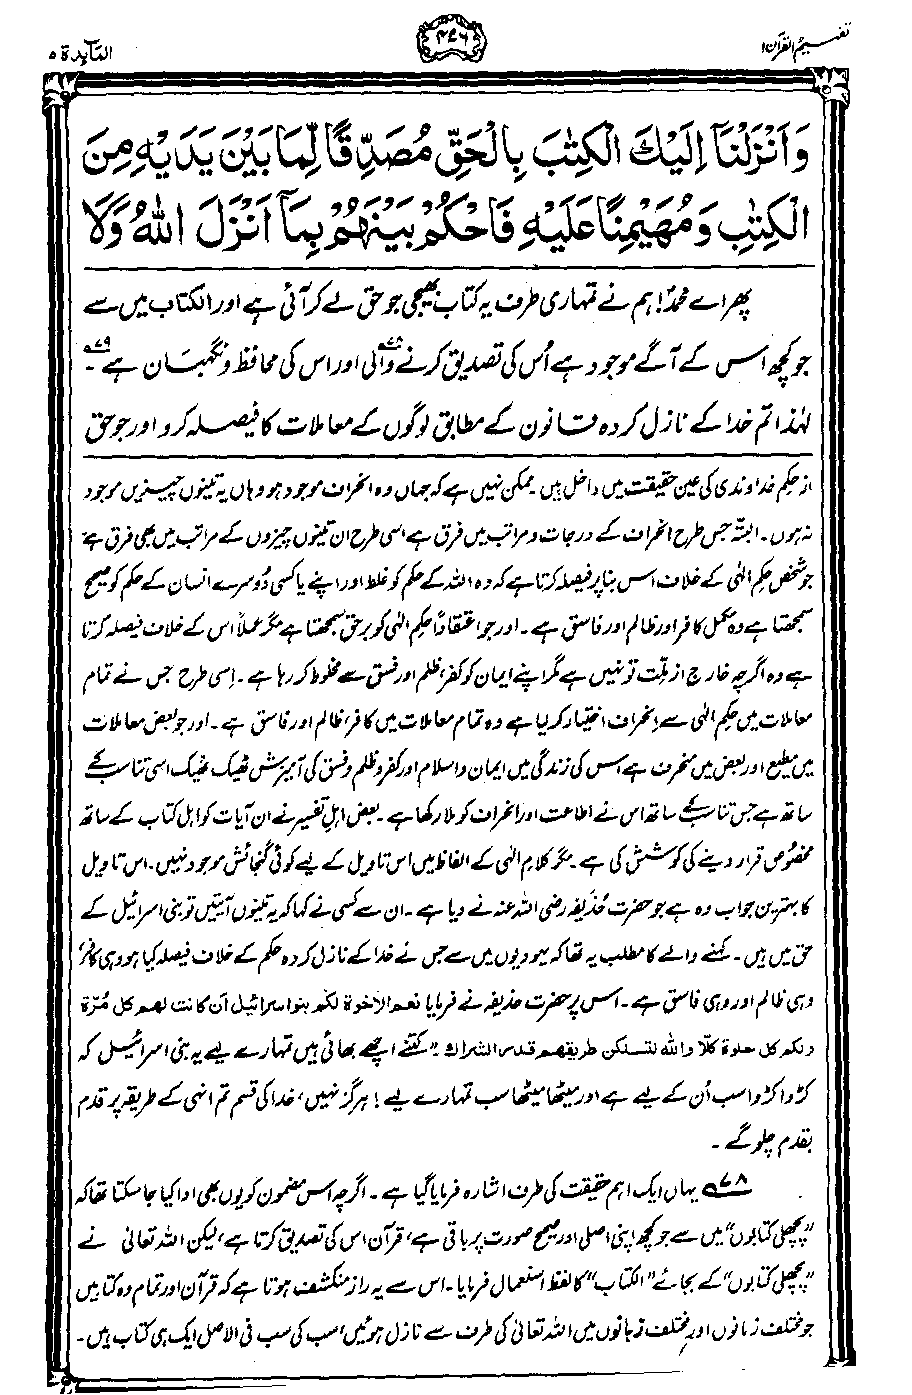 تفہیم القرآن ۱
۴۷۶
المآئدۃ ۵
وَاَنْزَلْنَآ اِلَيْكَ الْكِتٰبَ بِالْحَقِّ مُصَدِّقًا لِّمَا بَيْنَ يَدَيْهِ مِنَ
الْكِتٰبِ وَمُهَيْمِنًا عَلَيْهِ فَاحْكُمْ بَيْنَهُمْ بِمَآ اَنْزَلَ اللّٰهُ وَلَا
پھر اے محمدؐ! ہم نے تمہاری طرف یہ کتاب بھیجی جو حق لے کر آئی ہے اور الکتاب میں سے
جو کچھ اس کے آگے موجود ہے اُس کی تصدیق کرنے والی ۷۸؎ اور اس کی محافظ و نگہبان ہے ۷۹؎۔
لہٰذا تم خدا کے نازل کردہ قانون کے مطابق لوگوں کے معاملات کا فیصلہ کرو اور جو حق
از حکمِ خداوندی کی عین حقیقت میں داخل ہیں۔ ممکن نہیں ہے کہ جہاں وہ انحراف موجود ہو وہاں یہ تینوں چیزیں موجود
نہ ہوں۔ البتہ جس طرح انحراف کے درجات و مراتب میں فرق ہے اسی طرح ان تینوں چیزوں کے مراتب میں بھی فرق ہے۔
جو شخص حکمِ الٰہی کے خلاف اس بنا پر فیصلہ کرتا ہے کہ وہ اللہ کے حکم کو غلط اور اپنے یا کسی دُوسرے انسان کے حکم کو صحیح
سمجھتا ہے وہ مکمل کافر اور ظالم اور فاسق ہے۔ اور جو اعتقاداً حکم الٰہی کو برحق سمجھتا ہے مگر عملاً اس کے خلاف فیصلہ کرتا
ہے وہ اگرچہ خارج از ملّت تو نہیں ہے مگر اپنے ایمان کو کفر، ظلم اور فسق سے مخلوط کر رہا ہے۔ اِسی طرح جس نے تمام
معاملات میں حکمِ الٰہی سے اِنحراف اختیار کر لیا ہے وہ تمام معاملات میں کافر، ظالم اور فاسق ہے۔ اور جو بعض معاملات
میں مطیع اور بعض میں منحرف ہے اس کی زندگی میں ایمان و اسلام اور کفر و ظلم و فسق کی آمیزش ٹھیک ٹھیک اسی تناسب کے
ساتھ ہے جس تناسب کے ساتھ اس نے اطاعت اور انحراف کو ملا رکھا ہے۔ بعض اہلِ تفسیر نے ان آیات کو اہل کتاب کے ساتھ
مخصُوص قرار دینے کی کوشش کی ہے۔ مگر کلامِ الٰہی کے الفاظ میں اس تاویل کے لیے کوئی گنجائش موجود نہیں۔ اس تاویل
کا بہترین جواب وہ ہے جو حضرت حُذَیفہ رضی اللہ عنہ نے دیا ہے۔ ان سے کسی نے کہا کہ یہ تینوں آیتیں تو بنی اسرائیل کے
حق میں ہیں۔ کہنے والے کا مطلب یہ تھا کہ یہودیوں میں سے جس نے خدا کے نازل کردہ حکم کے خلاف فیصلہ کیا ہو وہی کافر،
وہی ظالم اور وہی فاسق ہے۔ اس پر حضرت حذیفہ نے فرمایا نعم الاخوة لكم بنو اسرائيل أن كانت لهم كل مُرّة
ولكم كل حلوة كلّا والله لتسلكن طريقهم قدر الشراك ”کتنے اچھے بھائی ہیں تمہارے لیے یہ بنی اسرائیل کہ
کڑوا کڑوا سب اُن کے لیے ہے اور میٹھا میٹھا سب تمہارے لیے! ہرگز نہیں، خدا کی قسم تم انہی کے طریقہ پر قدم
بقدم چلو گے۔
۷۸؎ یہاں ایک اہم حقیقت کی طرف اشارہ فرمایا گیا ہے۔ اگرچہ اس مضمون کو یوں بھی ادا کیا جا سکتا تھا کہ
”پچھلی کتابوں“ میں سے جو کچھ اپنی اصلی اور صحیح صورت پر باقی ہے، قرآن اس کی تصدیق کرتا ہے، لیکن اللہ تعالیٰ نے
”پچھلی کتابوں“ کے بجائے ”الکتاب“ کا لفظ استعمال فرمایا۔ اس سے یہ راز منکشف ہوتا ہے کہ قرآن اور تمام وہ کتابیں
جو مختلف زمانوں اور مختلف زبانوں میں اللہ تعالیٰ کی طرف سے نازل ہوئیں، سب کی سب فی الاصل ایک ہی کتاب ہیں۔